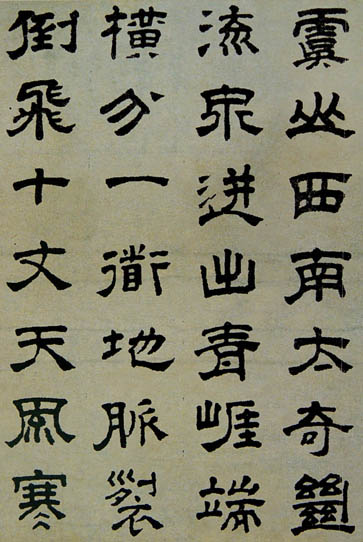 虞山西南太奇絕
流泉迸出青崕端
橫分一衜地脈裂
倒飛十丈天風寒